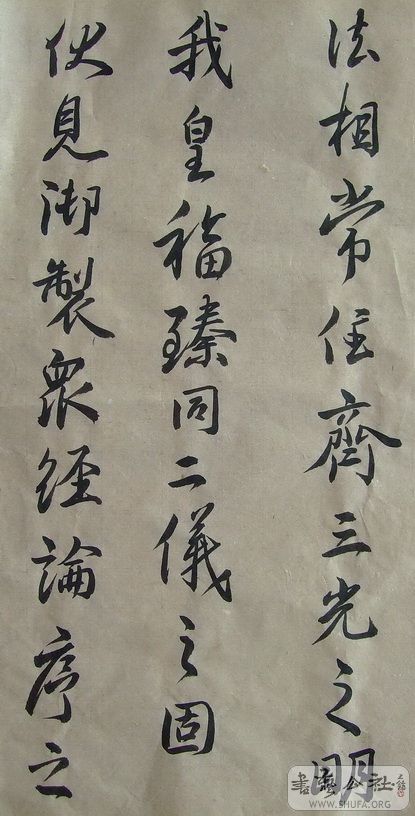 法相常住齊三光之明
我皇福臻同二儀之固
伏見御製眾經論序之
書法公社
WWW.SHUFA.ORG